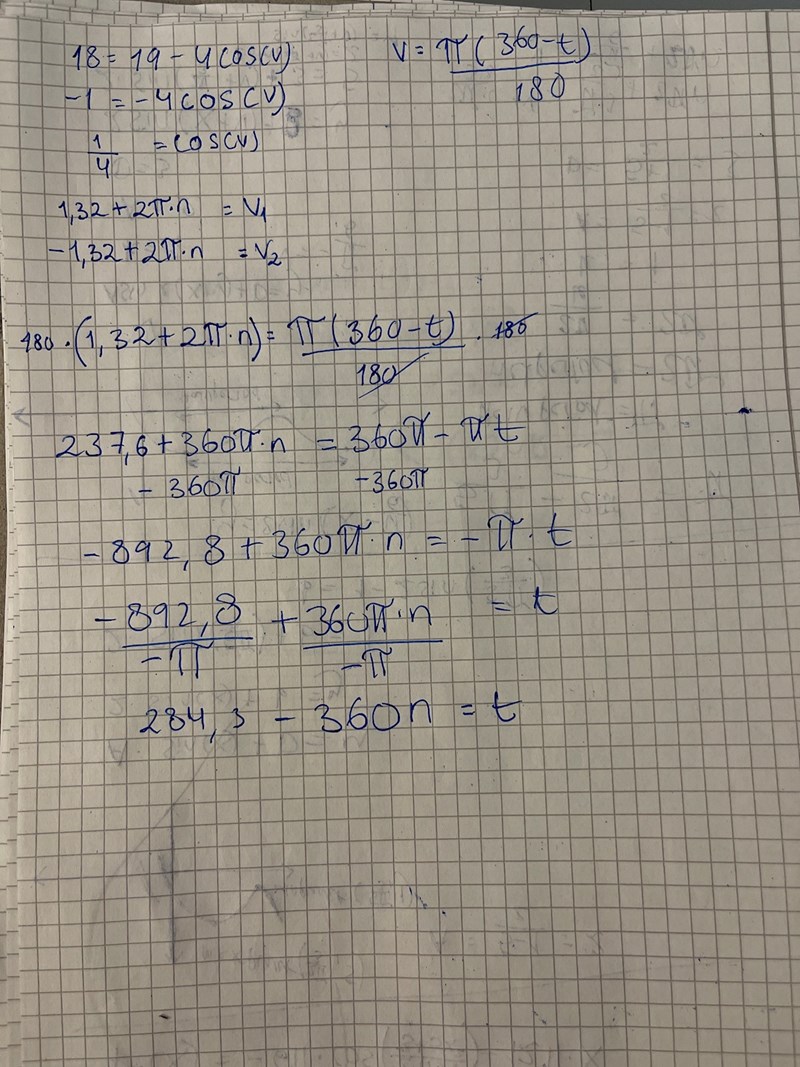 18 = 19 - 4cos(v)   v = π(360-t)/180
-1 = -4cos(v)
1/4 = cos(v)
1,32 + 2π·n = v₁
-1,32 + 2π·n = v₂
180·(1,32 + 2π·n) = π(360-t)/180 · 180
237,6 + 360π·n = 360π - πt
- 360π   -360π
-892,8 + 360π·n = -π·t
-892,8/-π + 360π·n/-π = t
284,3 - 360n = t